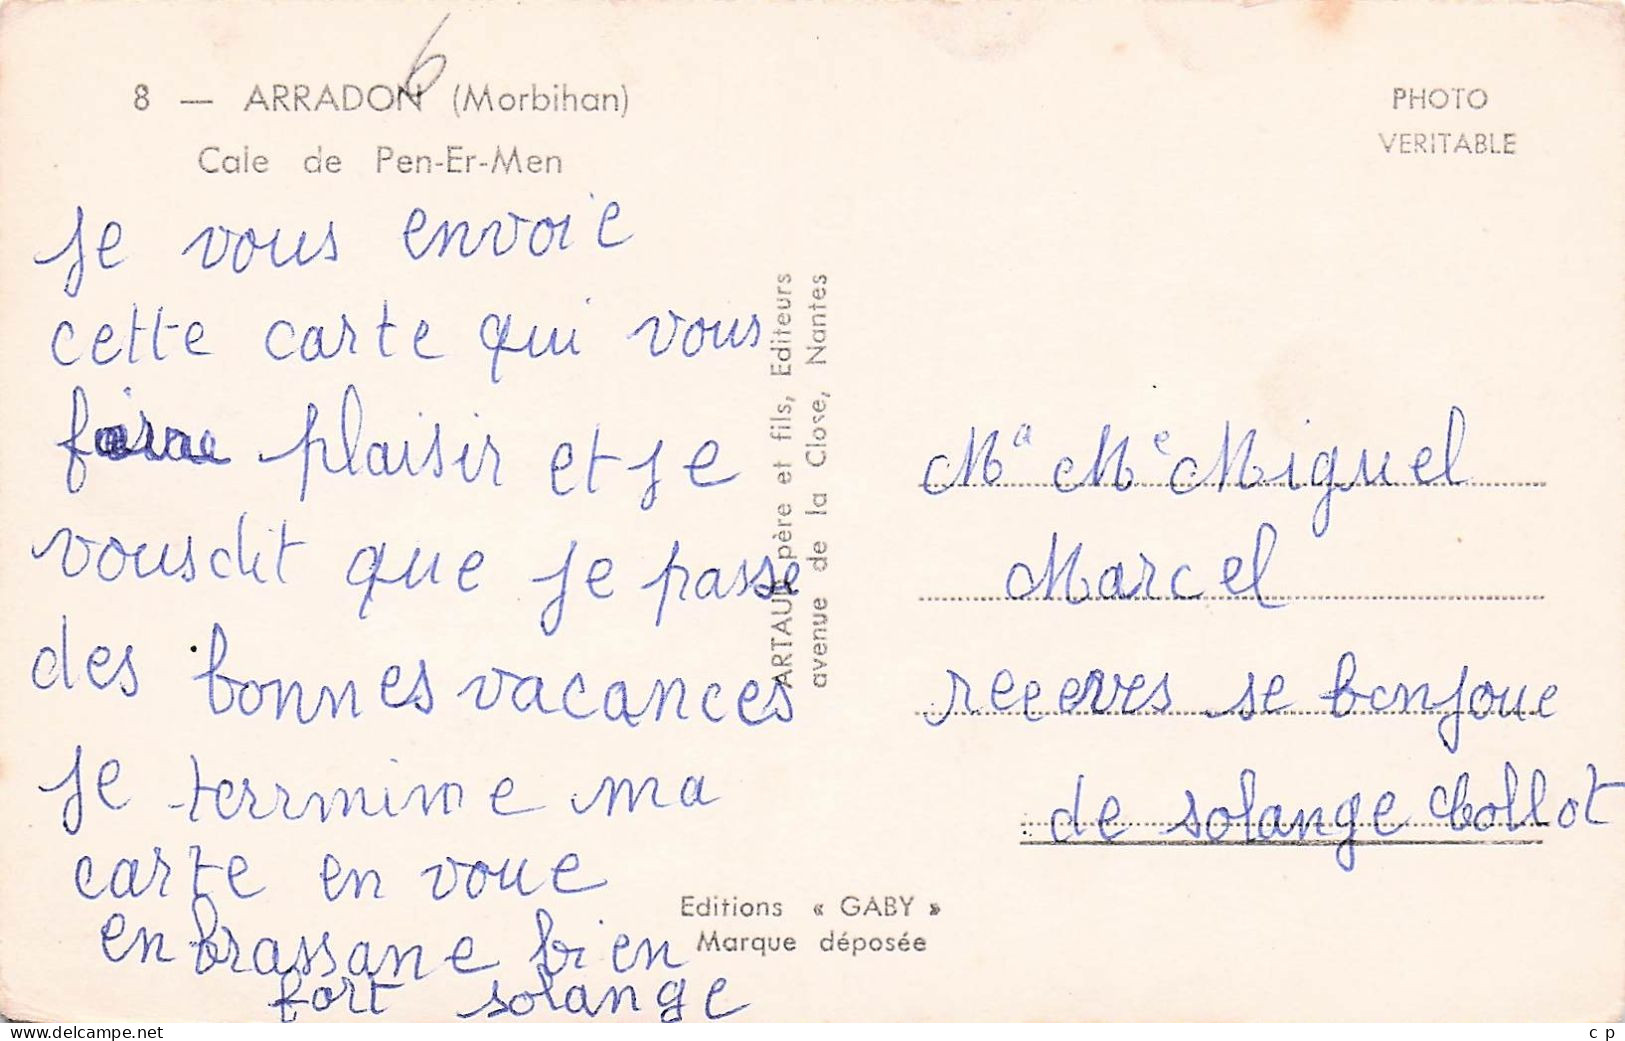 6
8 — ARRADON (Morbihan)
Cale de Pen-Er-Men
PHOTO
VERITABLE
Je vous envoie
cette carte qui vous
plaisir et je
vous dit que je passe
des bonnes vacances
Je terrmine ma
carte en voue
enbrassane bien
fort solange
ARTAUD père et fils, Editeurs
avenue de la Close, Nantes
Editions « GABY »
Marque déposée
Ma Me Miguel
Marcel
receves se bonjoue
de solange Collot
www.delcampe.net
cp